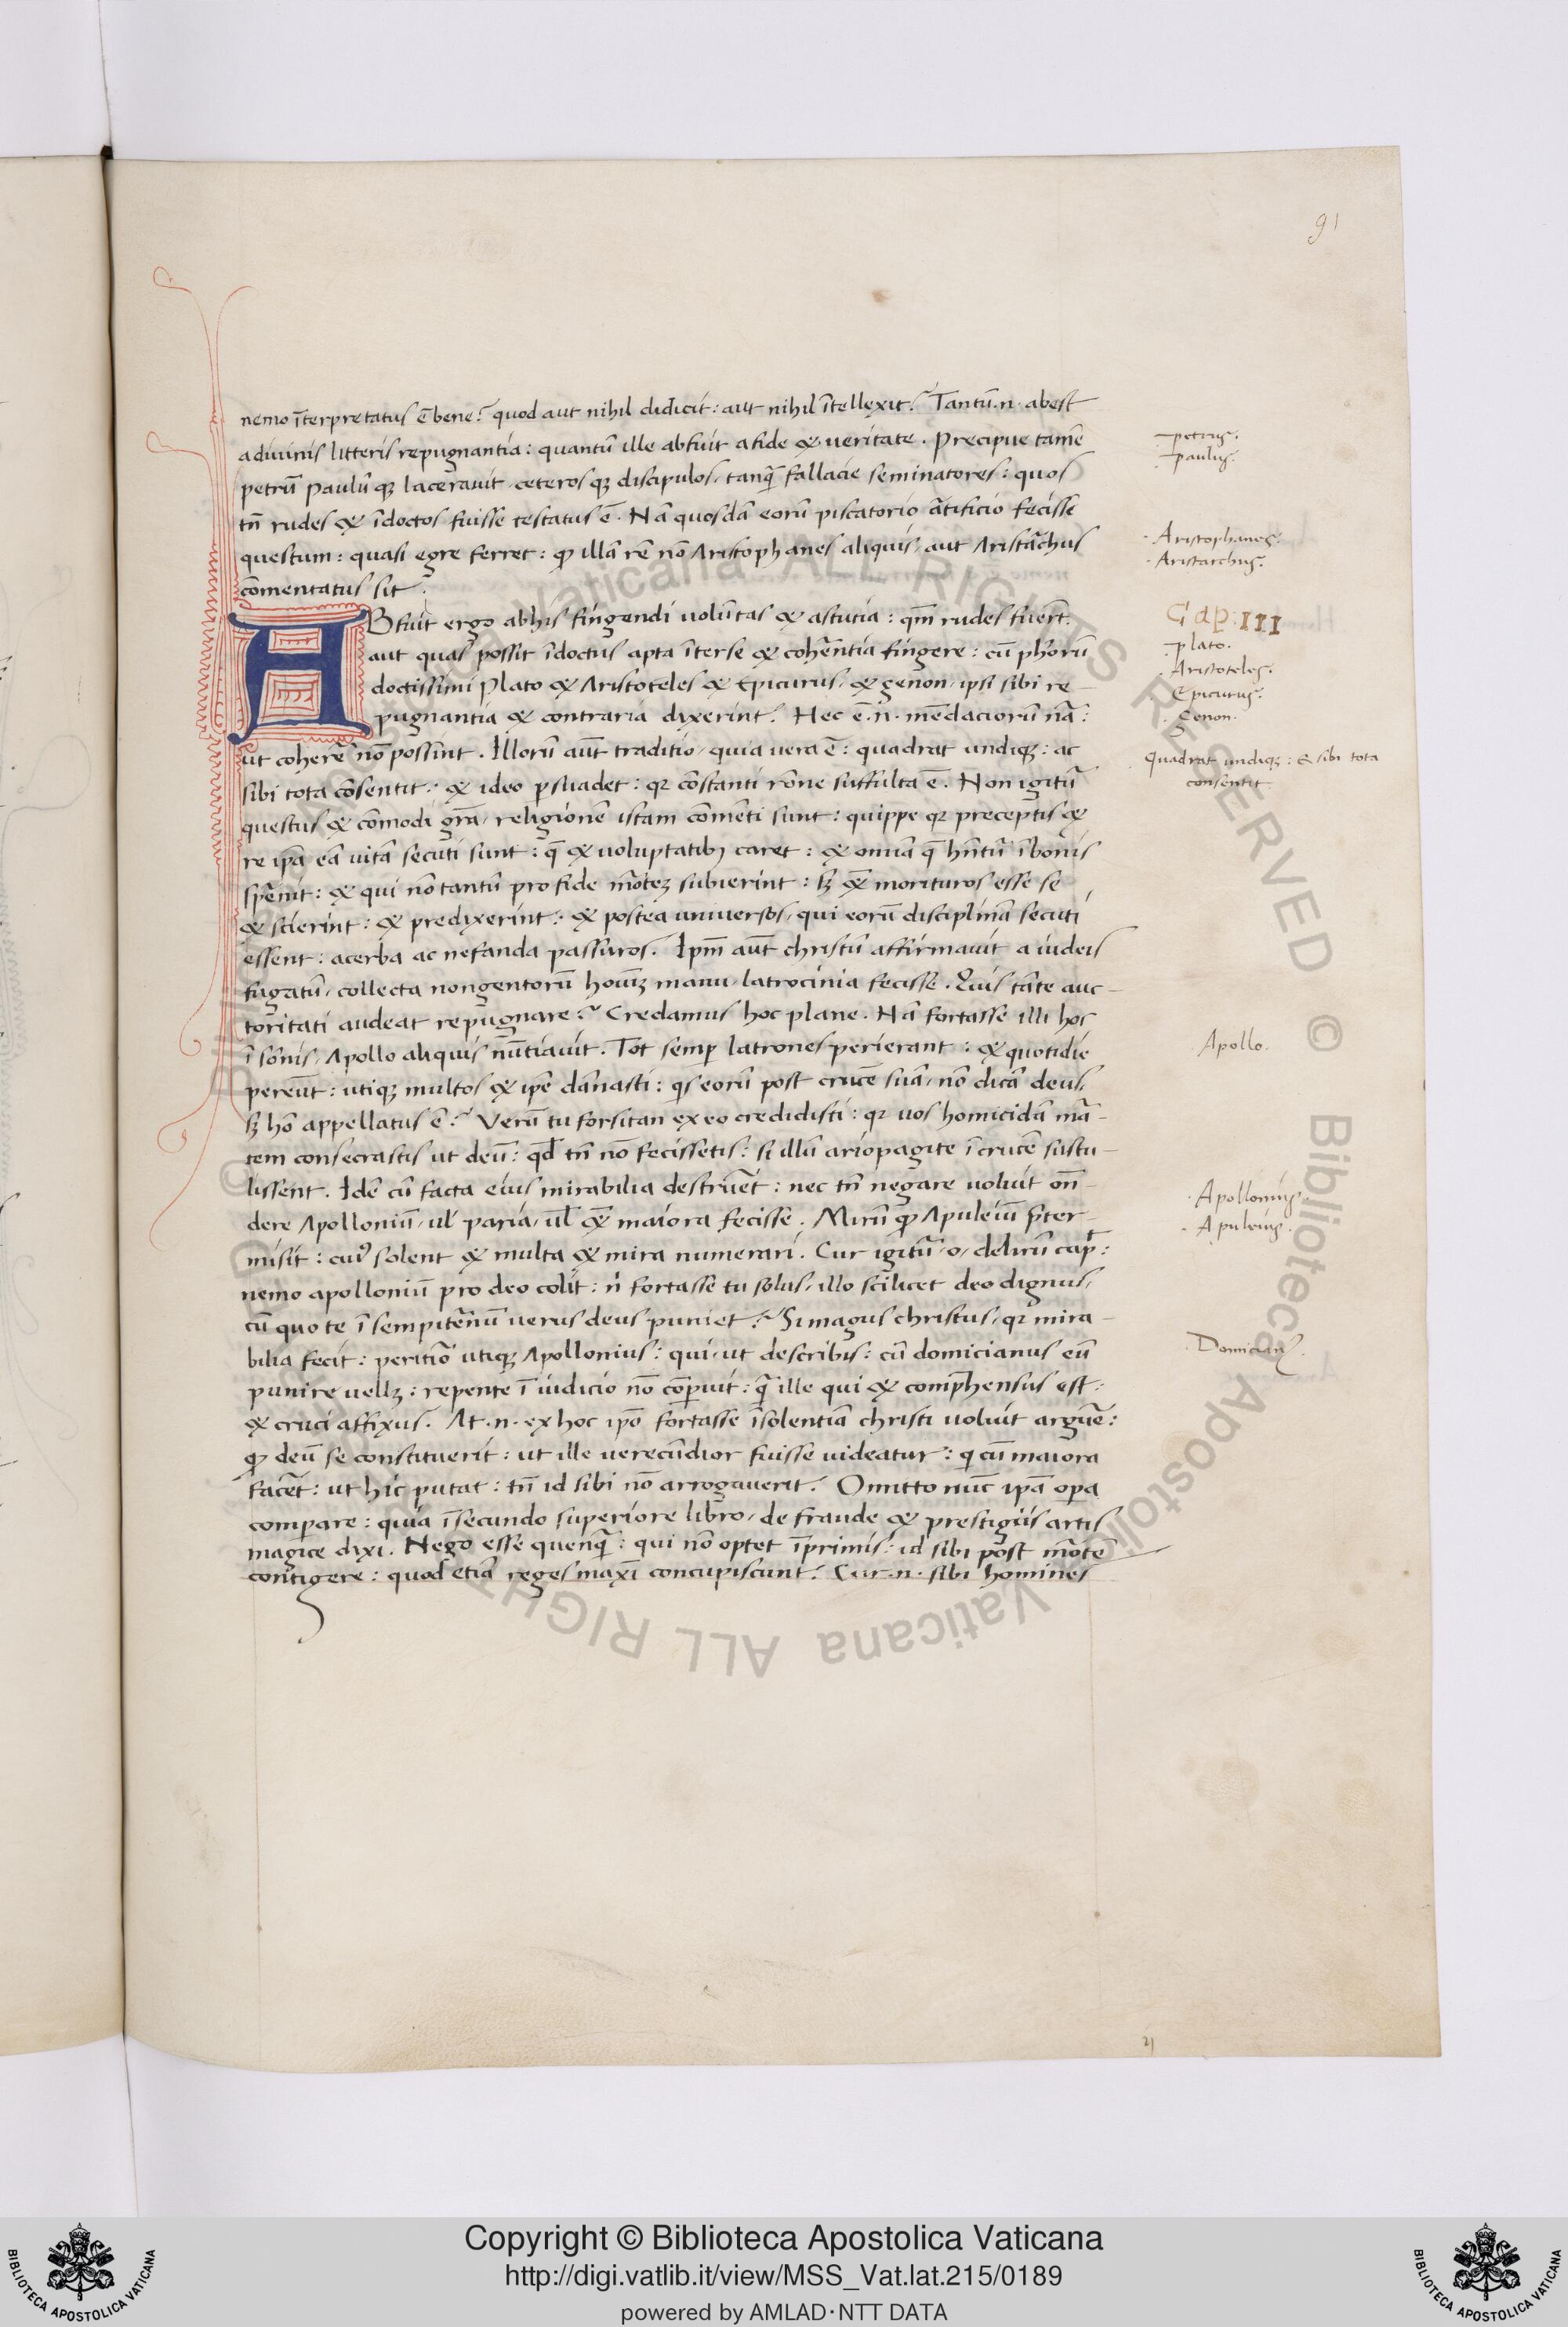 91
nemo īterpretatus ē bene? quod aut nihil didicit: aut nihil ītellexit? Tantū.n. abest
a divinis litteris repugnantia: quantū ille abfuit a fide & veritate. Precipue tamē
petrū Paulū qȝ laceravit, ceteros qȝ discipulos, tanq̄ fallacie seminatores: quos
tn̄ rudes & īdoctos fuisse testatus ē. Nā quosdā eorū piscatorio artificio fecisse
questum: quasi egre ferret: ꝙ illā rē nō Aristophanes aliquis, aut Aristarchus
cōmentatus sit.
petrus.
paulus.
Aristophanes.
Aristarchus.
ABfuit ergo ab his fingendi voluntas & astutia: qm̄ rudes fuert̄.
aut quas possit īdoctus apta īter se & coherentia fingere: cū ph̄orū
doctissimi Plato & Aristoteles & Epicurus, & zenon, ipsi sibi re-
pugnantia & contraria dixerint? Hec ē.n. mēdaciorū nā:
ut coherē nō possint. Illorū aūt traditio, quia vera ē: quadrat undiqȝ: ac
sibi tota cōsentit: & ideo ꝑsuadet: qꝛ cōstanti rōne suffulta ē. Non igitū
questus & cōmodi grā, religionē istam cōmēti sunt: quippe qꝛ preceptis &
re ipā eā vitā secuti sunt: q̄ & voluptatibȝ caret: & omīa q̄ hn̄tū ī bonis
spernit: & qui nō tantū pro fide mortēȝ subierint: sȝ ēt morituros esse se
& scierint: & predixerint: & postea universos, qui eorū disciplinā secuti
essent: acerba ac nefanda passuros. Ipm̄ aūt christū affirmavit a iudeis
fugatū, collecta nongentorū hoīuȝ manu, latrocinia fecisse. Quis tāte auc-
toritati audeat repugnare? Credamus hoc plane. Nā fortasse illi hoc
ī sōnis, Apollo aliquis nūtiavit. Tot semꝑ latrones perierant: & quotidie
pereūt: utiqȝ multos & ipē dānasti: qs eorū post crucē suā, nō dicā deus,
sȝ hō appellatus ē? Verū tu forsitan ex eo credidisti: qꝛ vos homicidā mā-
tem consecrastis ut deū: qđ tn̄ nō fecissetis: si illū ariopagite ī crucē sustu-
lissent. Idē cū facta eius mirabilia destruēt: nec tn̄ negare voluit on̄-
dere Apolloniū, ul̄ paria, ul̄ ēt maiora fecisse. Mirū ꝙ Apuleiū p̄ter-
misit: cui9 solent & multa & mira numerari. Cur igitū, o, delirū cap̄:
nemo apolloniū pro deo colit: n̄ fortasse tu solus, illo scilicet deo dignus,
cū quo te ī sempiternū verus deus puniet? Si magus christus, qꝛ mira-
bilia fecit: peritior utiqȝ Apollonius: qui, ut describis: cū domicianus eū
punire vellȝ: repente ī iudicio nō cōꝑuit: q̄ ille qui & comp̄hensus est:
& cruci affixus. At.n. ex hoc ipō fortasse īsolentiā christi voluit arguē:
ꝙ deū se constituerit: ut ille verecūdior fuisse videatur: q cum maiora
facēt: ut hic putat: tn̄ id sibi nō arrogaverit. Omitto nūc ipā oꝑa
comparare: quia ī secundo superiore libro, de fraude & prestigiis artis
magice dixi. Nego esse quenq̄: qui nō optet īprimis: id sibi post mortē
contigere: quod etiā reges maxī concupiscunt. Cur.n. sibi homines
Cap: III
plato.
Aristoteles.
Epicurus.
Zenon.
Quadrat undiqȝ: & sibi tota
consentit
Apollo.
Apollonius.
Apuleius.
Domician9.
21
Copyright © Biblioteca Apostolica Vaticana
http://digi.vatlib.it/view/MSS_Vat.lat.215/0189
powered by AMLAD·NTT DATA
BIBLIOTECA APOSTOLICA VATICANA
BIBLIOTECA APOSTOLICA VATICANA